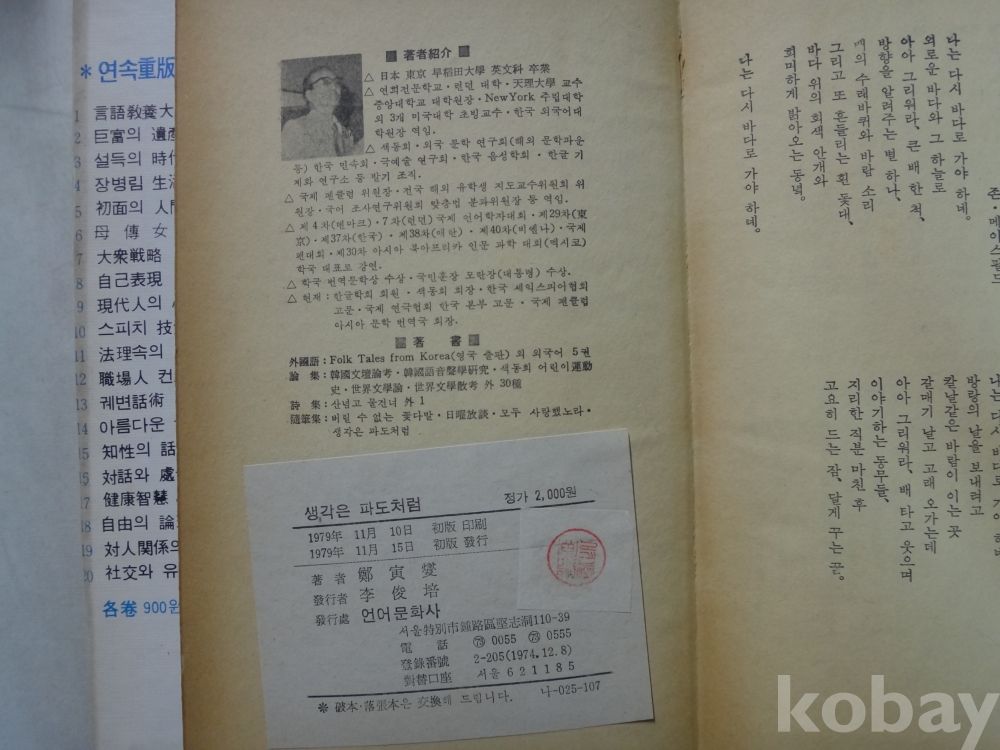 ＊연속重版
1 言語敎養大
2 巨富의 遺産
3 설득의 時代
4 장병림 生活
5 初面의 人間
6 母 傳 女
7 大衆戦略
8 自己表現
9 現代人의
10 스피치 技
11 法理속의
12 職場人 컨
13 궤변話術
14 아름다운
15 知性의 話
15 対話와 處
17 健康智慧
18 自由의 論
19 対人關係의
20 社交와 유
各卷 900원
■ 著者紹介 ■
△ 日本 東京 早稻田大學 英文科 卒業
△ 연희전문학교·런던 대학·天理大學 교수
중앙대학교 대학원장·New York 주립대학
외 3개 미국대학 초빙교수·한국 외국어대
학원장 역임.
△ 색동회·외국 문학 연구회(해외 문학파운
동) 한국 민속회·국예술 연구회·한국 음성학회·한글 기
계화 연구소 등 발기 조직.
△ 국제 펜클럽 위원장·전국 해외 유학생 지도교수위원회 위
원장·국어 조사연구위원회 맞춤법 분과위원장 등 역임.
△ 제4차(덴마크)·7차(런던) 국제 언어학자대회·제29차(東
京)·제37차(한국)·제38차(애란)·제40차(비엔나)·국제
펜대회·제30차 아시아 북아프리카 인문 과학 대회(멕시코)
학국 대표로 강연.
△ 학국 번역문학상 수상·국민훈장 모란장(대통령) 수상.
△ 현재: 한글학회 회원·색동회 회장·한국 세익스피어협회
고문·국제 연극협회 한국 본부 고문·국제 펜클럽
아시아 문학 번역국 회장.
■ 著 書 ■
外國語: Folk Tales from Korea(영국 출판) 외 외국어 5권
論 集: 韓國文壇論考·韓國語音聲學硏究·색동회 어린이運動
史·世界文學論·世界文學散考 外 30種
詩 集: 산넘고 물건너 外 1
隨筆集: 버릴 수 없는 꽃다발·日曜放談·모두 사랑했노라·
생각은 파도처럼
생각은 파도처럼 정가 2,000원
1979年 11月 10日 初版 印刷
1979年 11月 15日 初版 發行
著 者 鄭 寅 燮
發行者 李 俊 培
發行處 언어문화사
서울特別市鍾路區堅志洞110-39
電 話 ㉆ 0055 ㉆ 0555
登錄番號 2-205(1974.12.8)
對替口座 서울 6 2 1 1 8 5
＊ 破本·落張本은 交換해 드립니다. 나-025-107
존·메이스필드
나는 다시 바다로 가야 하네.
외로운 바다와 그 하늘로
아아 그리워라, 큰 배 한 척,
방향을 알려주는 별 하나,
배의 수레바퀴와 바람 소리
그리고 또 흔들리는 흰 돛대,
바다 위의 회색 안개와
희미하게 밝아오는 동녘.
나는 다시 바다로 가야 하네.
나는 다시 바다로 가야 하네
방랑의 날을 보내려고
칼날같은 바람이 이는 곳
갈매기 날고 고래 오가는데
아아 그리워라, 배 타고 웃으며
이야기하는 동무들,
지리한 직분 마친 후
고요히 드는 잠, 달게 꾸는 꿈.
kobay